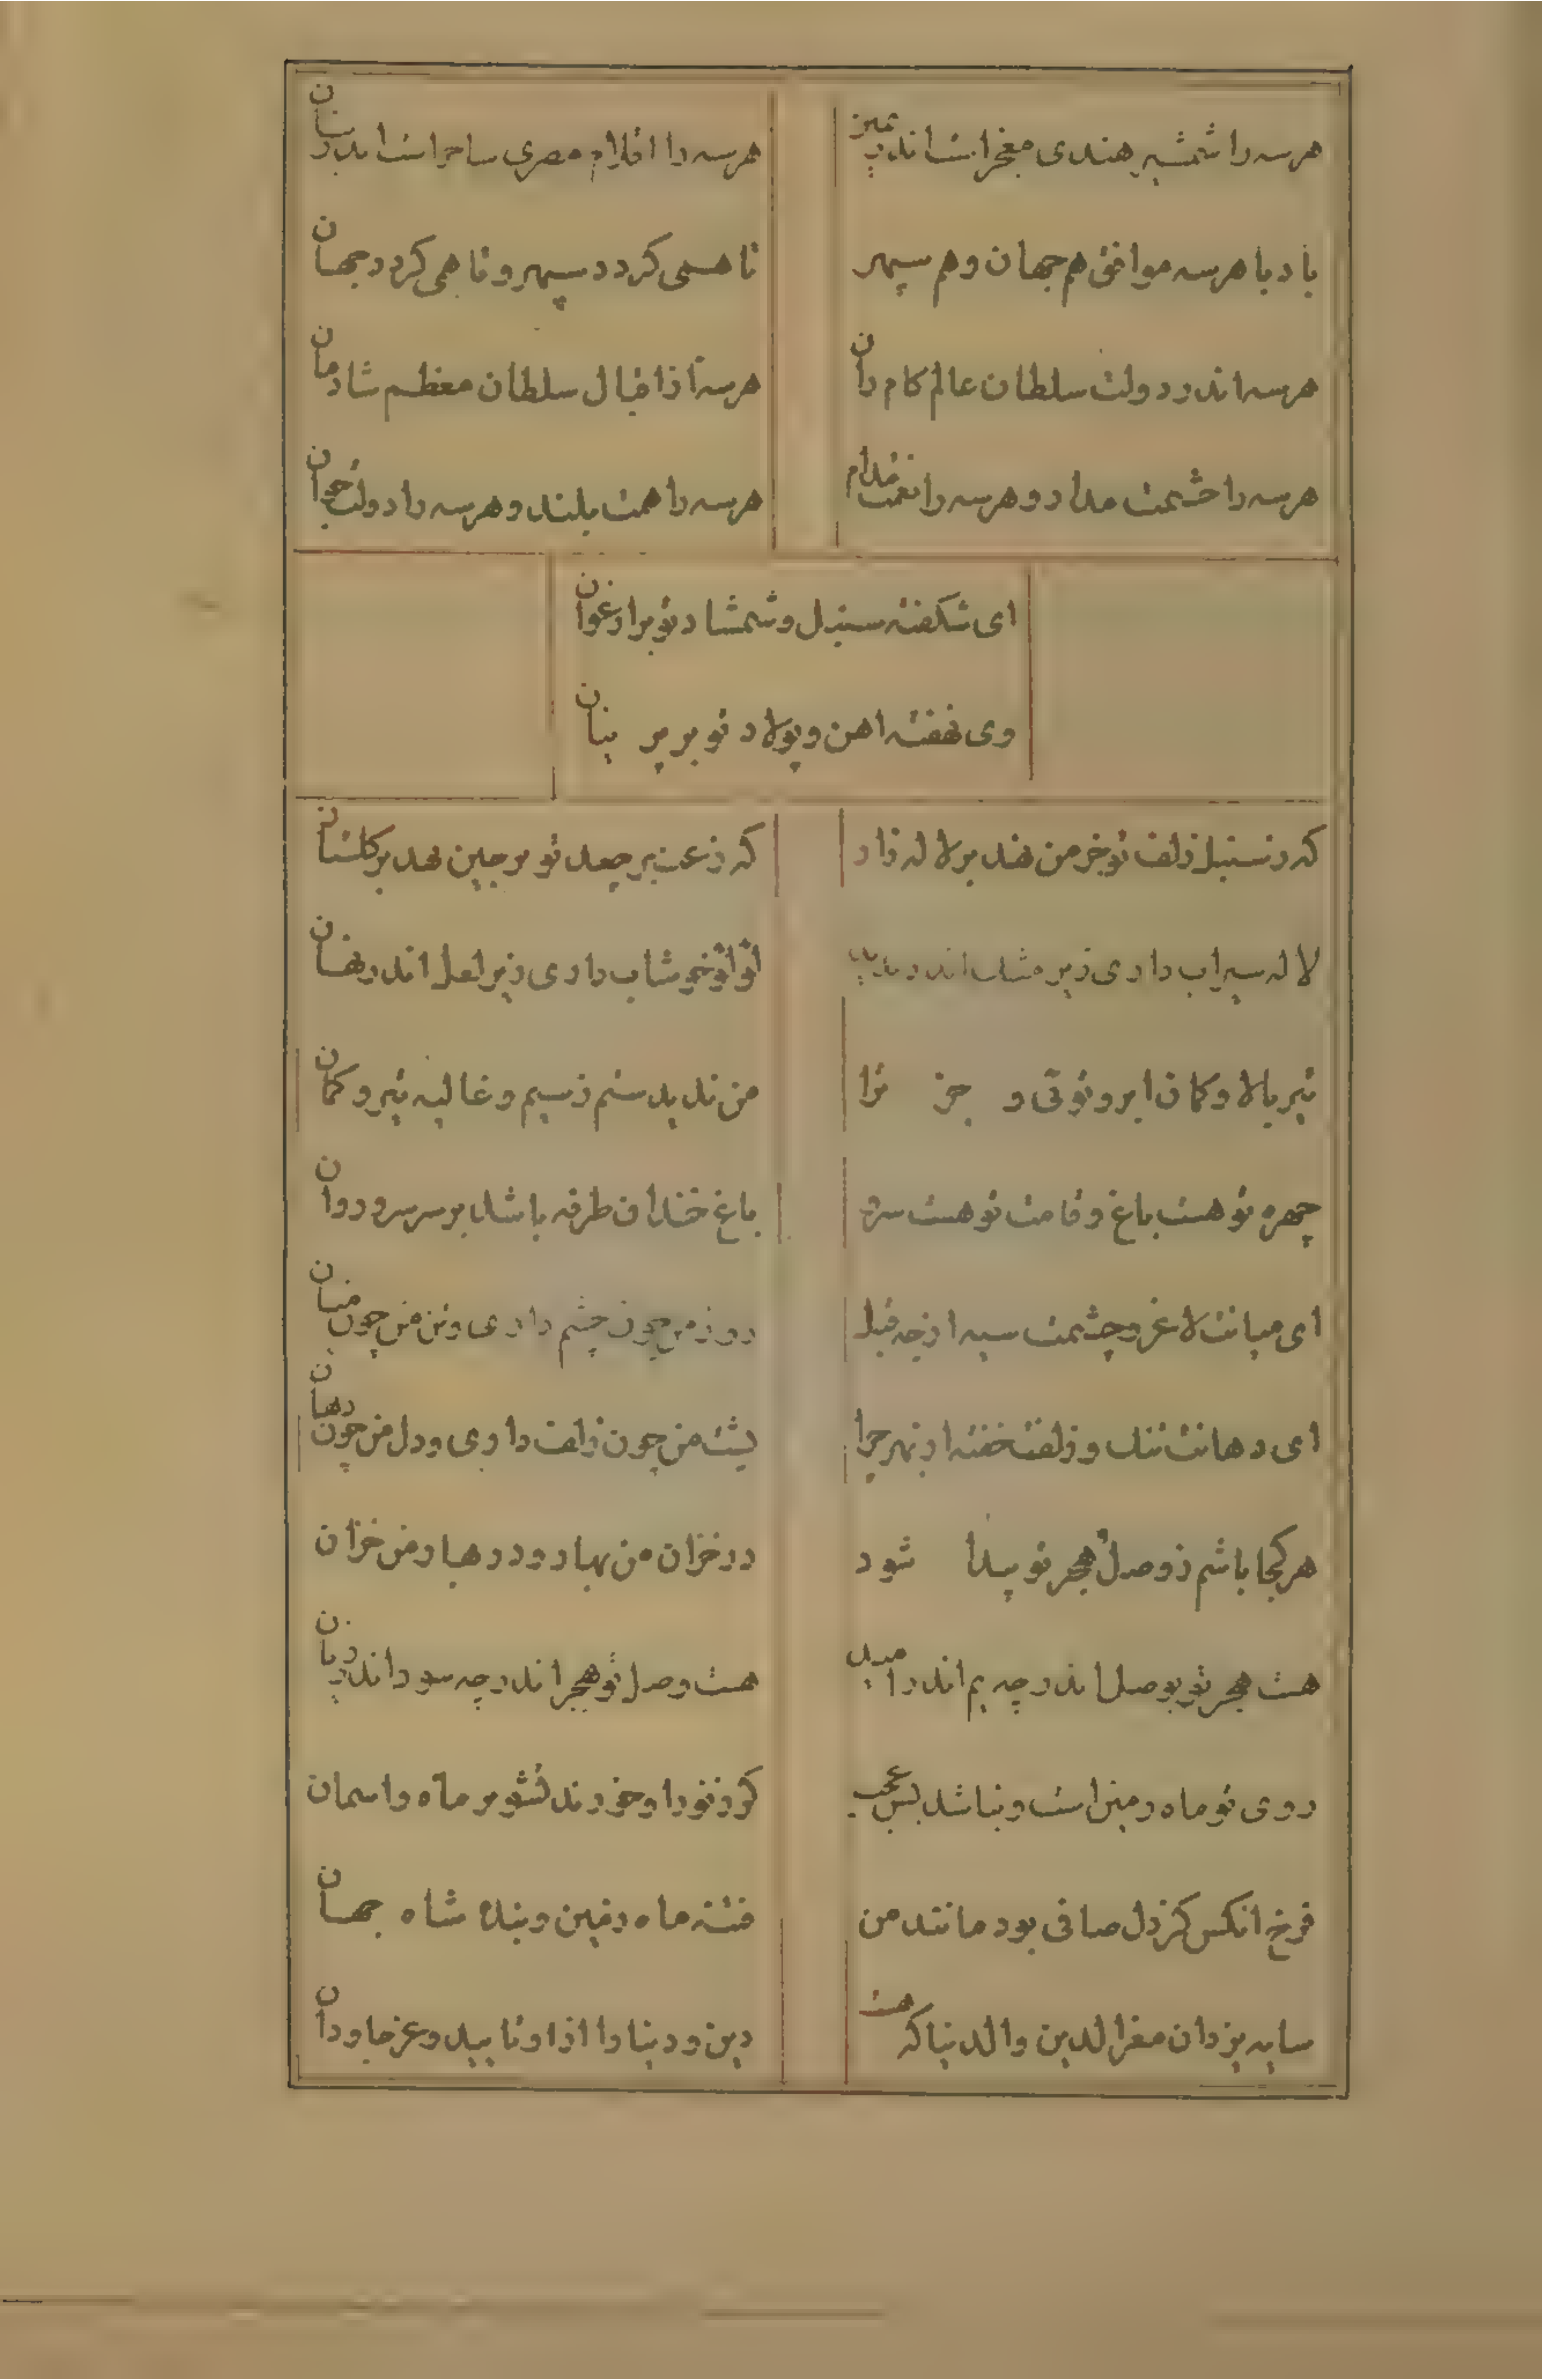 هرسه را شمشیر هندی معجزاست اندر یمین
هرسه را اقلام مصری ساحراست اندر بنان
باد با هرسه موافق هم جهان و هم سپهر
تا همی کردد سپهر و تا همی کردد جهان
هرسه اندر دولت سلطان عالم کام ران
هرسه از اقبال سلطان معظم شادمان
هرسه را حشمت مدام و هرسه را نعمت تمام
هرسه را همت بلند و هرسه را دولت جوان
ای شکفته سنبل و شمشاد تو بر ارغوان
وی نهفته اهن و پولاد تو بر پرنیان
که ز سنبل زلف تو خرمن نهد بر لاله زار
که ز عنبر جعد تو پرچین نهد بر کلستان
لاله سیراب داری زیر مشک اندر پدید
لؤلؤ خوشاب داری زیر لعل اندر نهان
تیر بالا و کمان ابرو توئی و جز ترا
من ندیدستم ز سیم و غالیه تیر و کمان
چهره تو هست باغ و قامت تو هست سرو
باغ خندان طرفه باشد بر سر سرو روان
ای میانت لاغر و چشمت سیه از چه قبل
روز من چون چشم داری و تن من چون میان
ای دهانت تنک و زلفت خفته از بهر چرا
پشت من چون زلف داری و دل من چون دهان
هرکجا باشم ز وصل و هجر تو پیدا شود
در خزان من بهار و در بهار من خزان
هست هجر تو بوصل اندر چه بیم اندر امید
هست وصل تو بهجر اندر چه سود اندر زیان
روی تو ماه زمین است و نباشد بس عجب
کر ز نور او خورد تشویر ماه واسمان
فرخ انکس کز دل صافی بود مانند من
فتنه ماه زمین و بنده شاه جهان
سایه یزدان معزالدین والدنیا که هست
دین و دنیا را ازاو تایید و عز جاودان